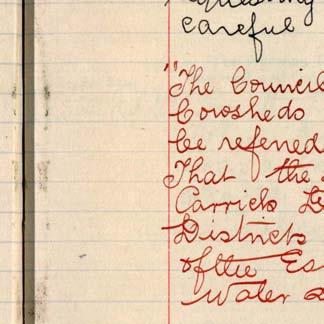 careful
"The Council
Cowsheds
be referred
That the
Carrick
Districts
of the Es
Water